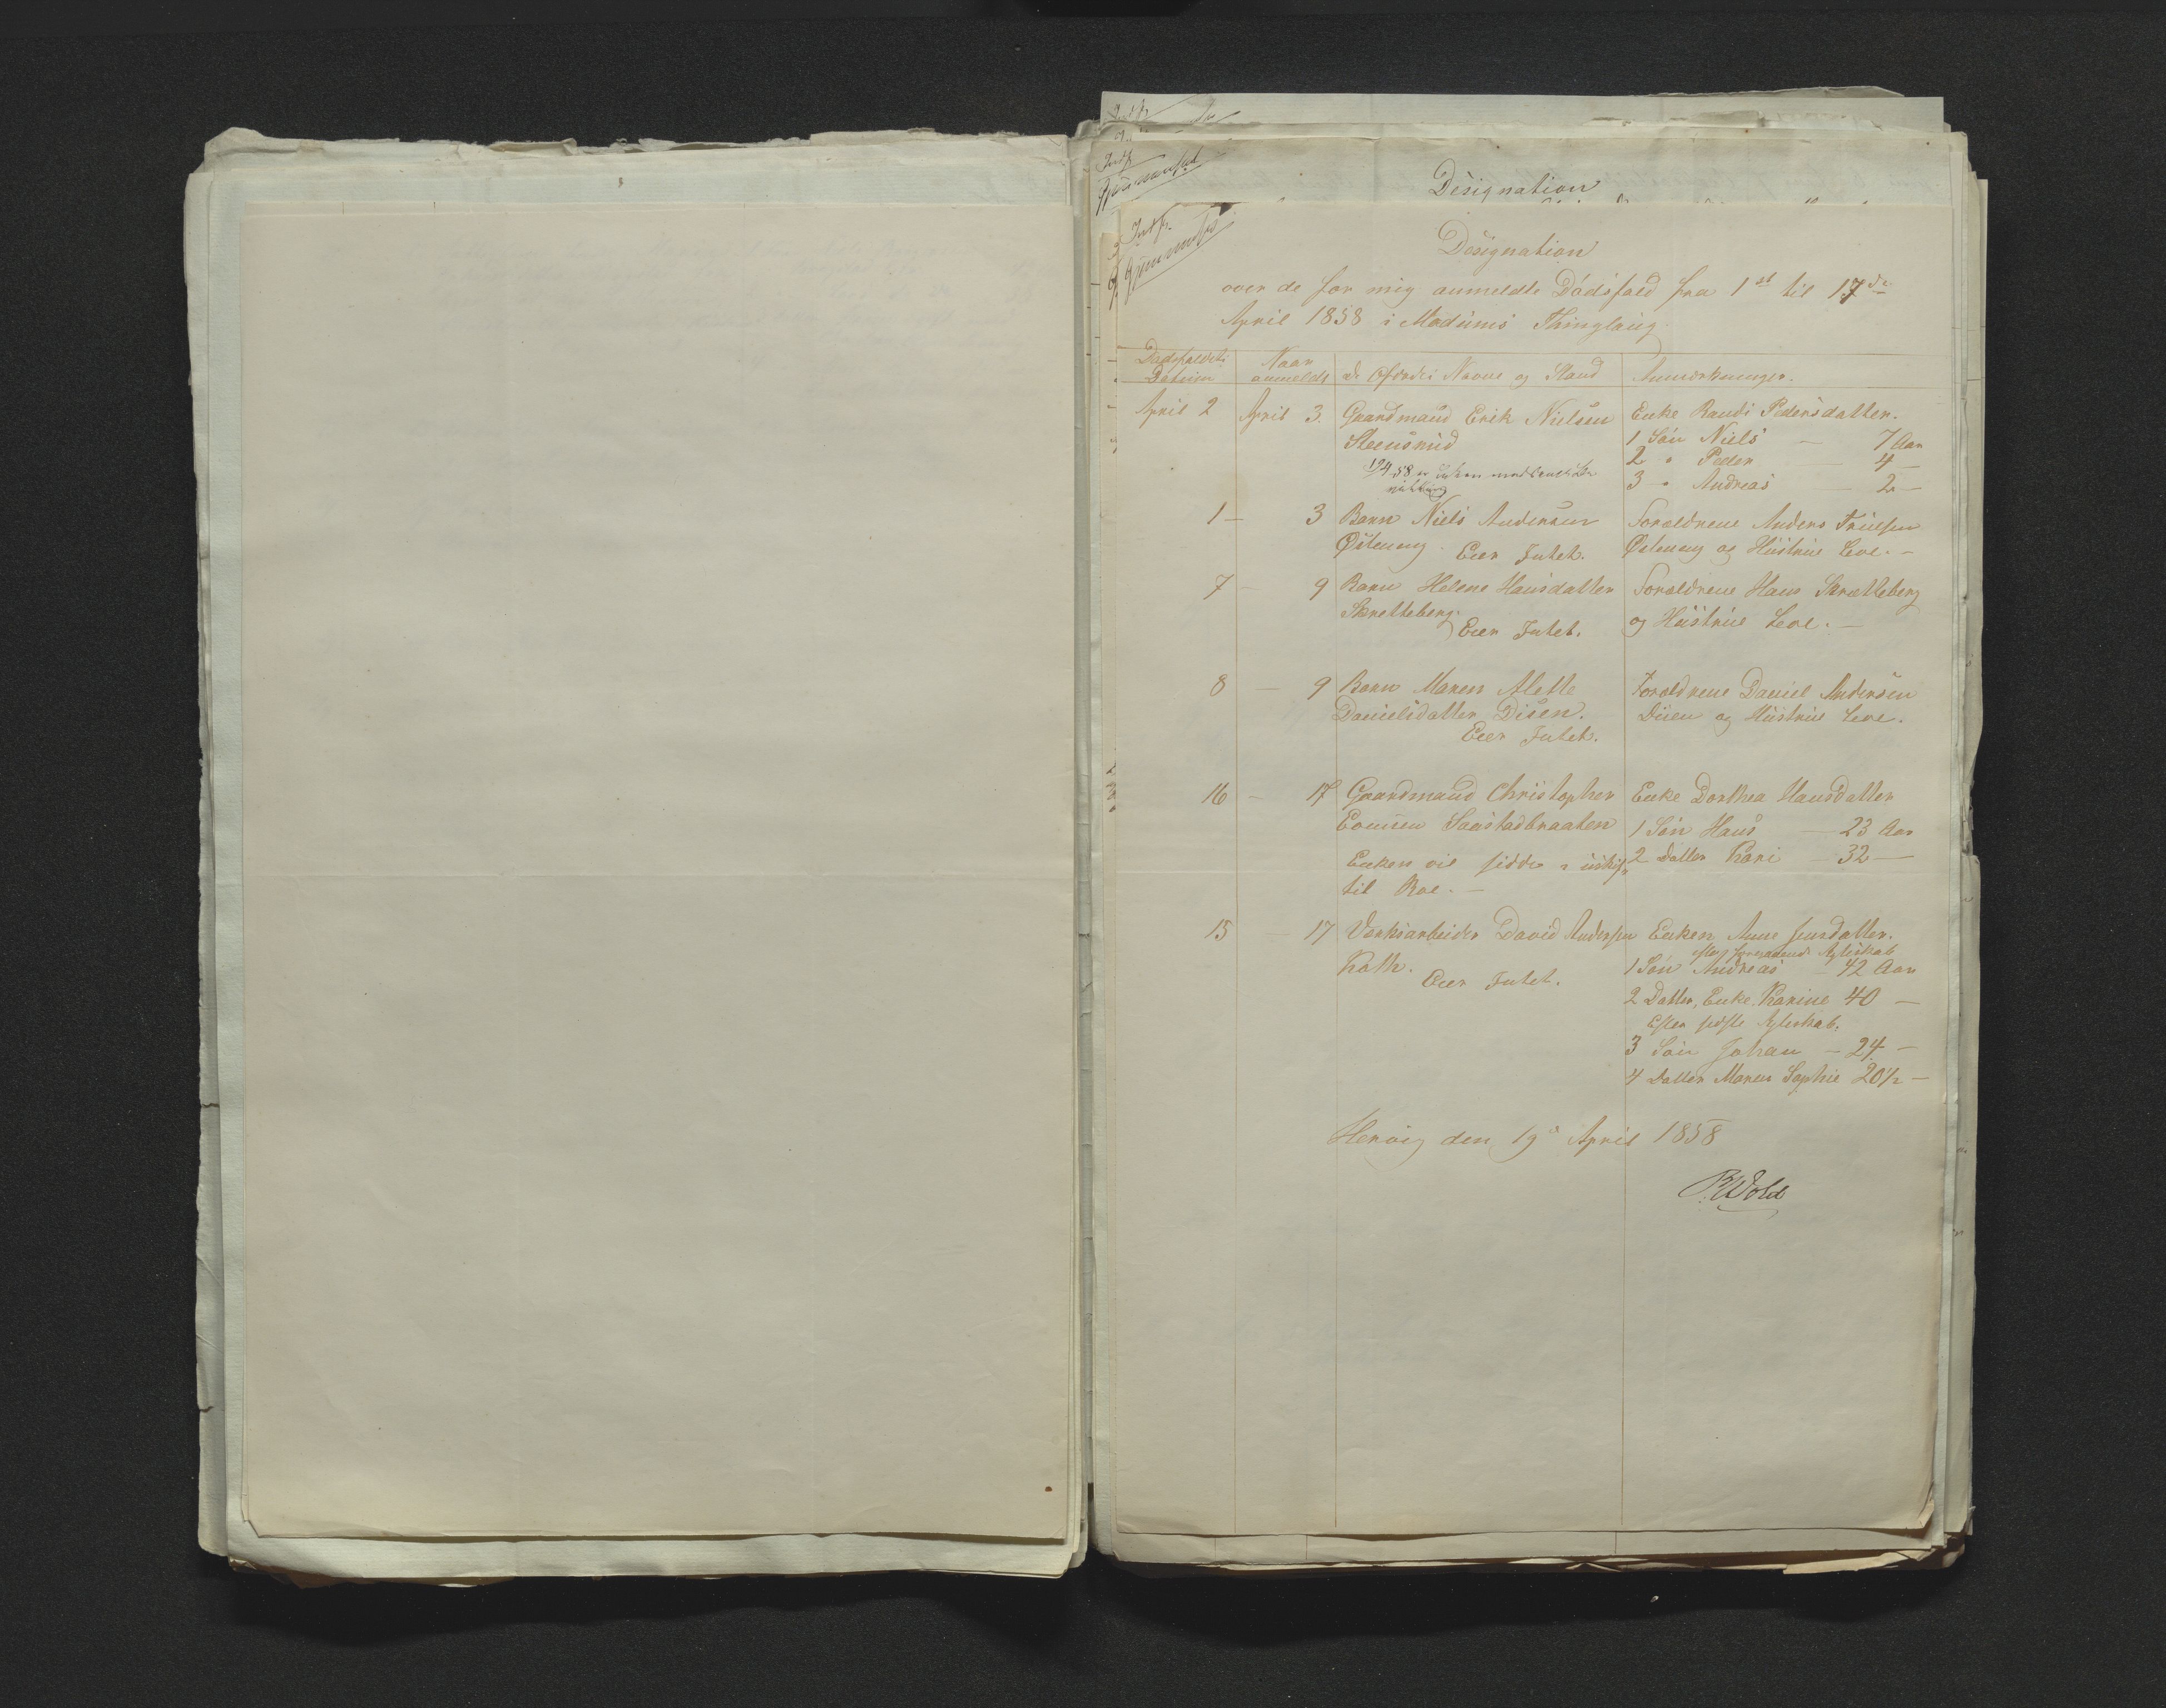 Designation
Designation
over de for mig anmeldte Dødsfald fra 1st til 17de
April 1858 i Modums Thinglaug.
Dødsfaldets Datum
Naar anmeldt
de Afdødes Navne og Stand
Anmærkninger.
April 2
April 3.
Gaardmand Erik Nielsen
Steensrud
Enke Randi Pedersdatter.
1 Søn Niels — 7 Aar
2 " Peder — 4 —
3 — " Andreas — 2 —
1 —
3
Barn Niels Andersen
Østeneng. Eier Intet.
Forældrene Anders
Østeneng og Hustrue Leve. —
7 —
9
Barn Helene Hansdatter
Skretteberg.
Eier Intet.
Forældrene Hans Skretteberg
og Hustrue Leve. —
8
— 9
Barn Maren Alette
Danielsdatter Disen.
Eier Intet.
Forældrene Daniel Andersen
Disen og Hustrue Leve.
16 —
17
Gaardmand Christopher
Saastadbraaten
Enken vil sidde i uskift
til Boe. —
Enke Dorthea Hansdatter
1 Søn Hans — 23 Aar
2 Datter Kari — 32 —
15
— 17
Værksarbeider David Andersen
Koth.
Eier Intet.
Enken Anne Jensdatter.
efter foregaaende Ægteskab
1 Søn Andreas — 42 Aar
2 Datter, Enke, Karine 40 —
Efter sidste Ægteskab.
3 Søn Johan — 24 —
4 Datter Maren Sophie 20 1/2 —
den 19de April 1858
Wold